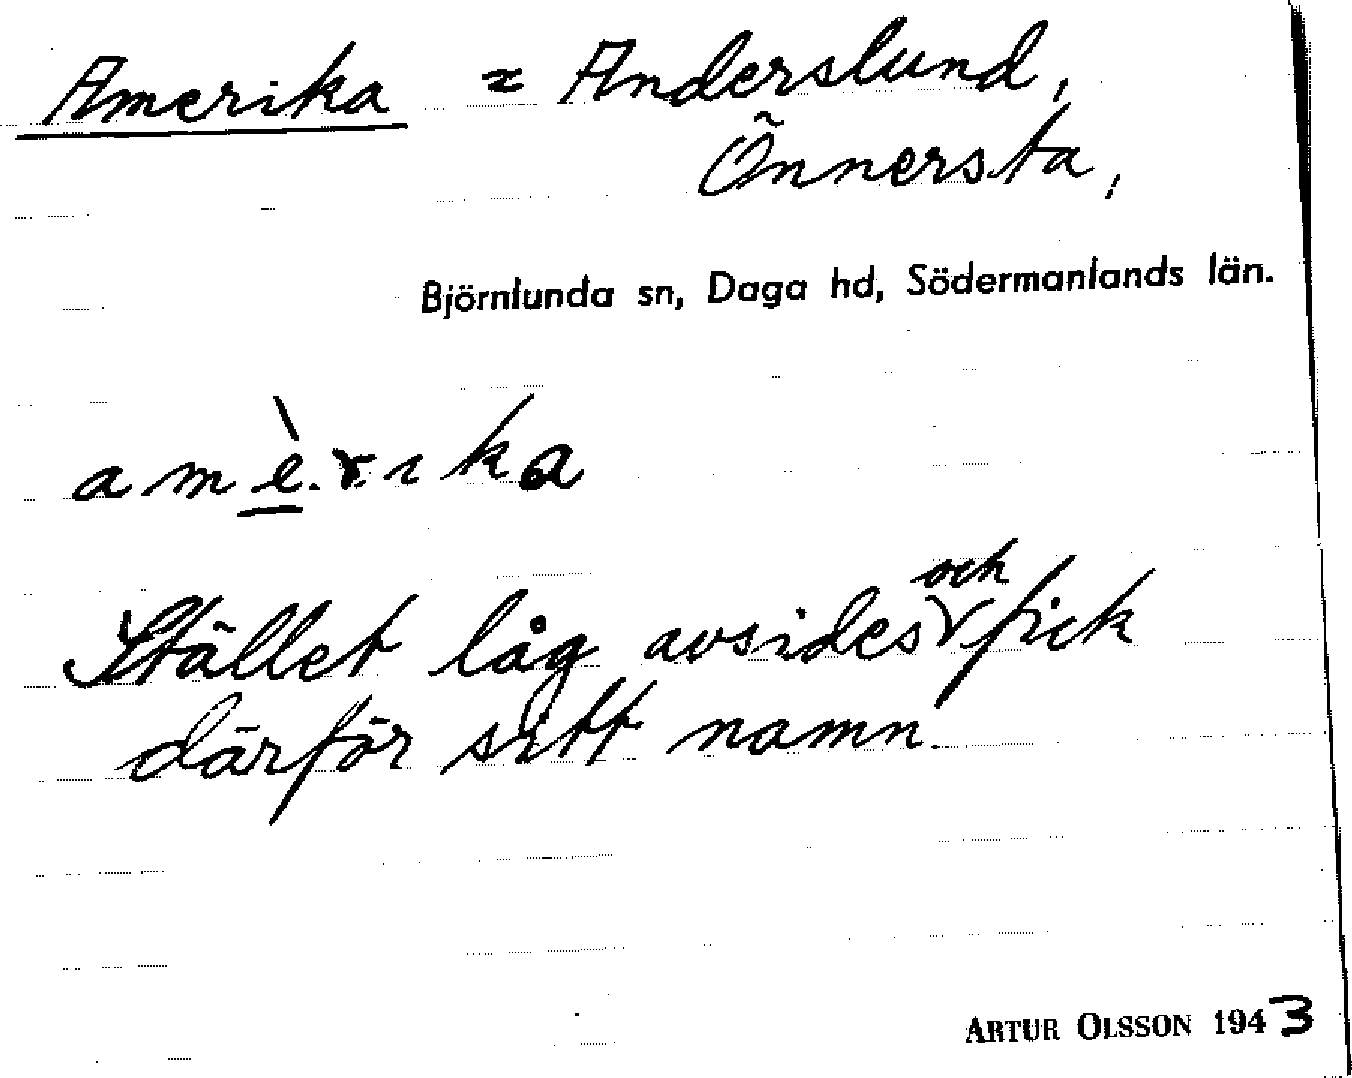 Amerika = Anderslund,
Önnersta,
Björnlunda sn, Daga hd, Södermanlands län.
amè.rıka
Stället låg avsides och fick
därför sitt namn.
ARTUR OLSSON 1943